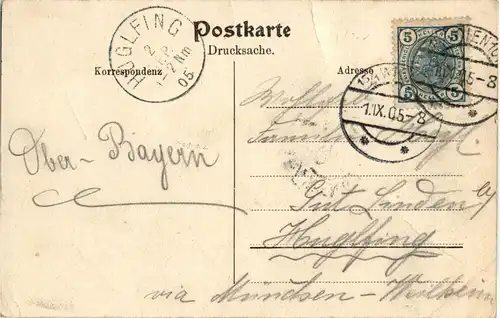 HUGLFING
2
SEP
2 Nm
05
Postkarte
Drucksache.
Korrespondenz
Adresse
5 5
5 5
1.IX.05-8
Familie
Ober-Bayern
Gut Linden
Huglfing
via München-Weilheim